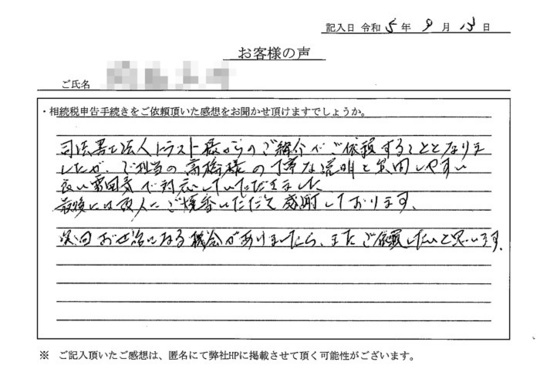 記入日 令和 5年 9月 13日
お客様の声
ご氏名
・相続税申告手続きをご依頼頂いた感想をお聞かせ頂けますでしょうか。
司法書士法人トラスト様からのご紹介でご依頼することとなりま
したが、ご担当の高橋様の丁寧な説明と質問しやすい
良い雰囲気で対応していただきました
最後には故人にご焼香いただいて感謝しております。
次回お世話になる機会がありましたら、またご依頼したいと思います。
※ ご記入頂いたご感想は、匿名にて弊社HPに掲載させて頂く可能性がございます。